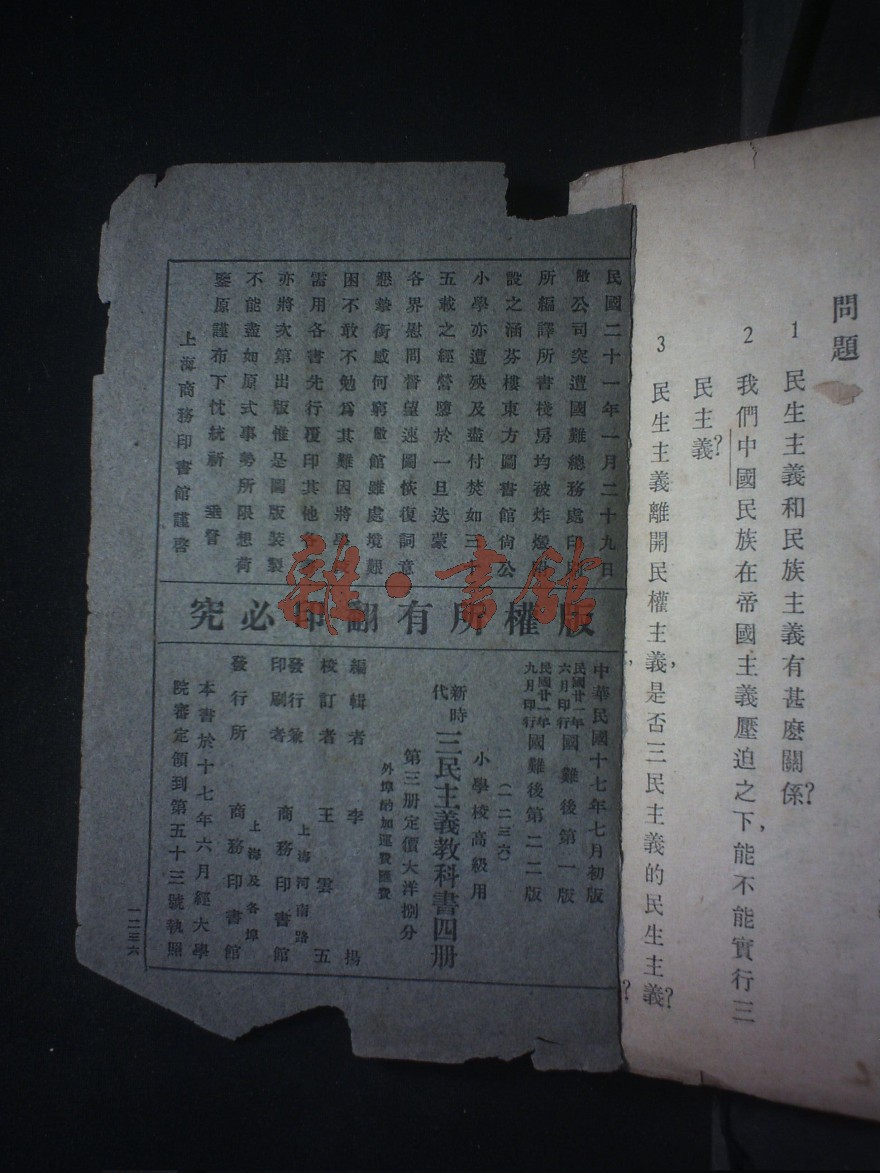 問題
1 民生主義和民族主義有甚麼關係?
2 我們中國民族在帝國主義壓迫之下,能不能實行三
民主義?
3 民生主義離開民權主義,是否三民主義的民生主義?
民國二十一年一月二十九日
敝公司突遭國難總務處印刷
所編譯所書棧房均被炸燬附
設之涵芬樓東方圖書館尚公
小學亦遭殃及盡付焚如三十
五載之經營隳於一旦迭蒙
各界慰問督望速圖恢復詞意
懇摯銜感何窮敝館雖處境艱
困不敢不勉爲其難因將學校
需用各書先行覆印其他各書
亦將次第出版惟是圖版裝製
不能盡如原式事勢所限想荷
鑒原謹布下忱統祈 垂詧
上海商務印書館謹啓
版權所有翻印必究
中華民國十七年七月初版
民國廿一年六月印行國難後第一版
民國廿一年九月印行國難後第二二版
(一二三六)
小學校高級用
新時代三民主義教科書四册
第三册定價大洋捌分
外埠酌加運費匯費
編輯者 李揚
校訂者 王雲五
發行兼印刷者 上海河南路 商務印書館
發行所 上海及各埠 商務印書館
本書於十七年六月經大學
院審定領到第五十三號執照
一二三六
雜·書館